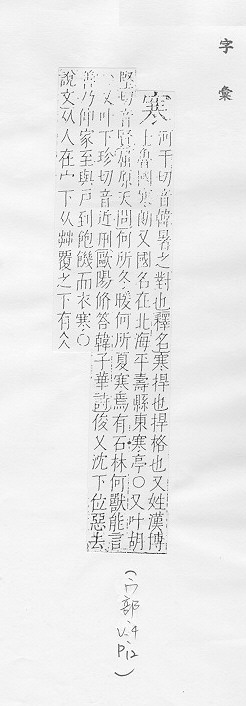 字彙
寒 河干切音韓暑之對也釋名寒捍也捍格也又姓漢博
士魯國寒朗又國名在北海平壽縣東寒亭○又叶胡
堅切音賢屈原天問何所冬暖何所夏寒焉有石林何獸能言
○又叶下珍切音近刑歐陽修答韓子華詩俊又沈下位惡去
善乃伸家至與戶到飽饑而衣寒○
說文从人在宀下从茻覆之下有仌
(宀部、V.4 P.12)